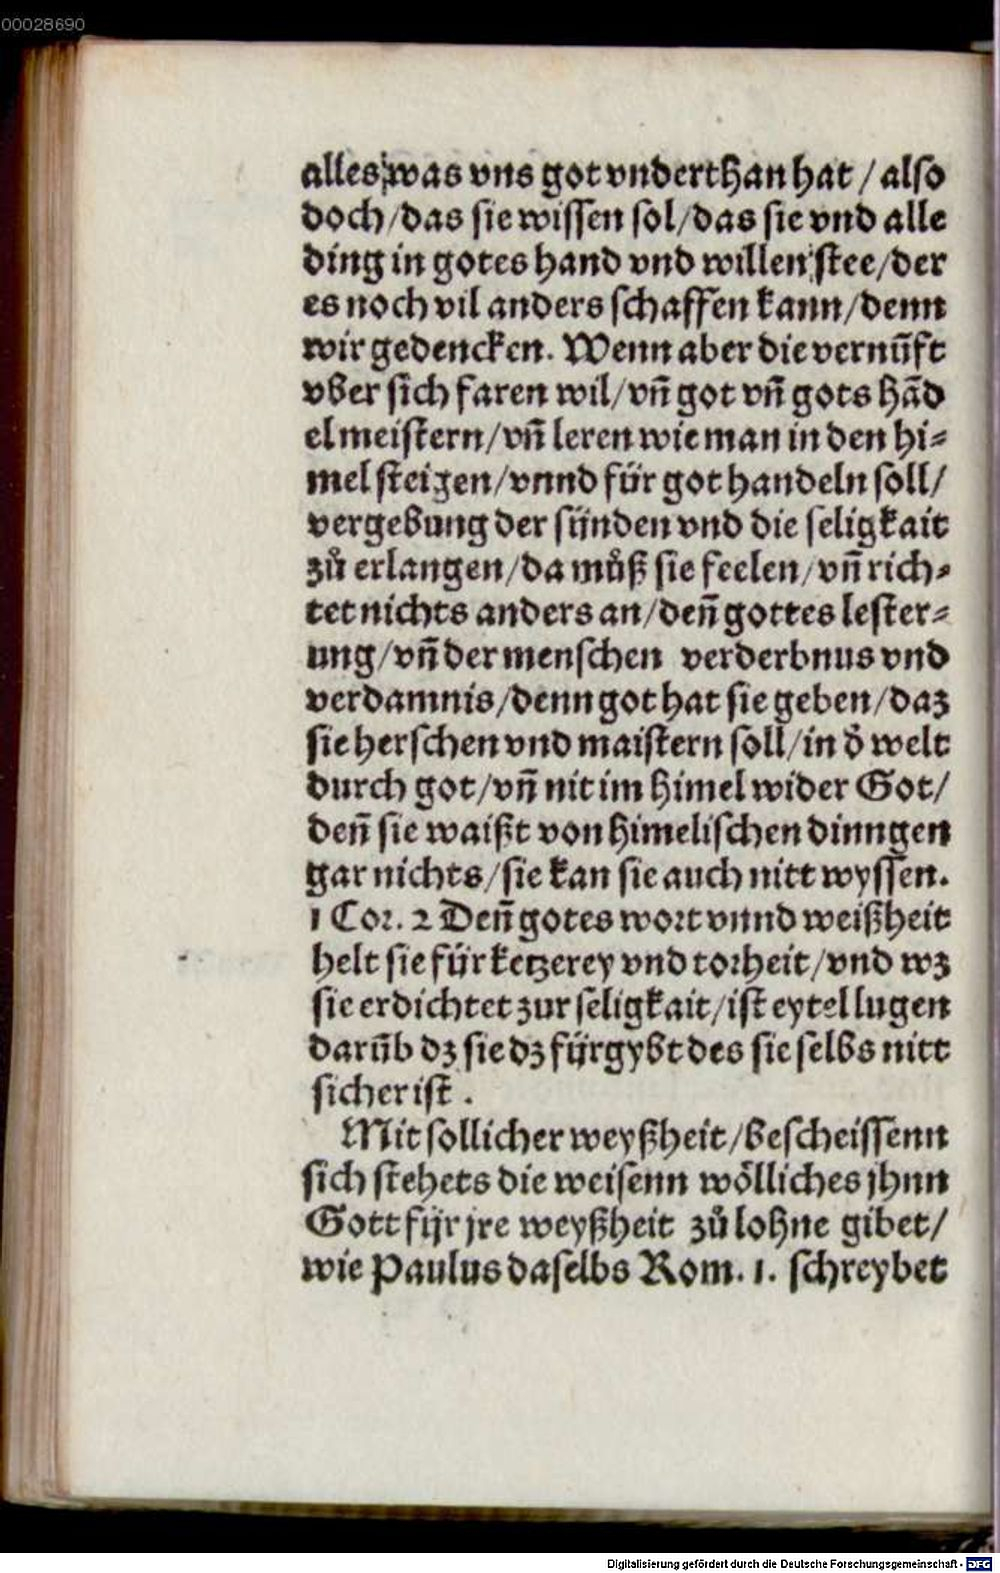 00028690
alles was vns got vnderthan hat / also
doch/das sie wissen sol/das sie vnd alle
ding in gotes hand vnd willen stee/der
es noch vil anders schaffen kann/denn
wir gedencken. Wenn aber die vernūft
vber sich faren wil/vn̄ got vn̄ gots hād
el meistern/vn̄ leren wie man in den hi=
mel steigen/vnnd für got handeln soll/
vergebung der sünden vnd die seligkait
zů erlangen/da můß sie feelen/vn̄ rich=
tet nichts anders an/den̄ gottes lester=
ung/vn̄ der menschen verderbnus vnd
verdamnis/denn got hat sie geben/daz
sie herschen vnd maistern soll/in d̓ welt
durch got/vn̄ nit im himel wider Got/
den̄ sie waißt von himelischen dinngen
gar nichts/sie kan sie auch nitt wyssen.
1 Cor. 2 Den̄ gotes wort vnnd weißheit
helt sie für ketzerey vnd torheit/vnd wz
sie erdichtet zur seligkait/ist eytel lugen
darūb dz sie dz fürgybt des sie selbs nitt
sicher ist.
Mit sollicher weyßheit/bescheissenn
sich stehets die weisenn wölliches jhnn
Gott für jre weyßheit zů lohne gibet/
wie Paulus daselbs Rom. 1. schreybet
Digitalisierung gefördert durch die Deutsche Forschungsgemeinschaft - DFG